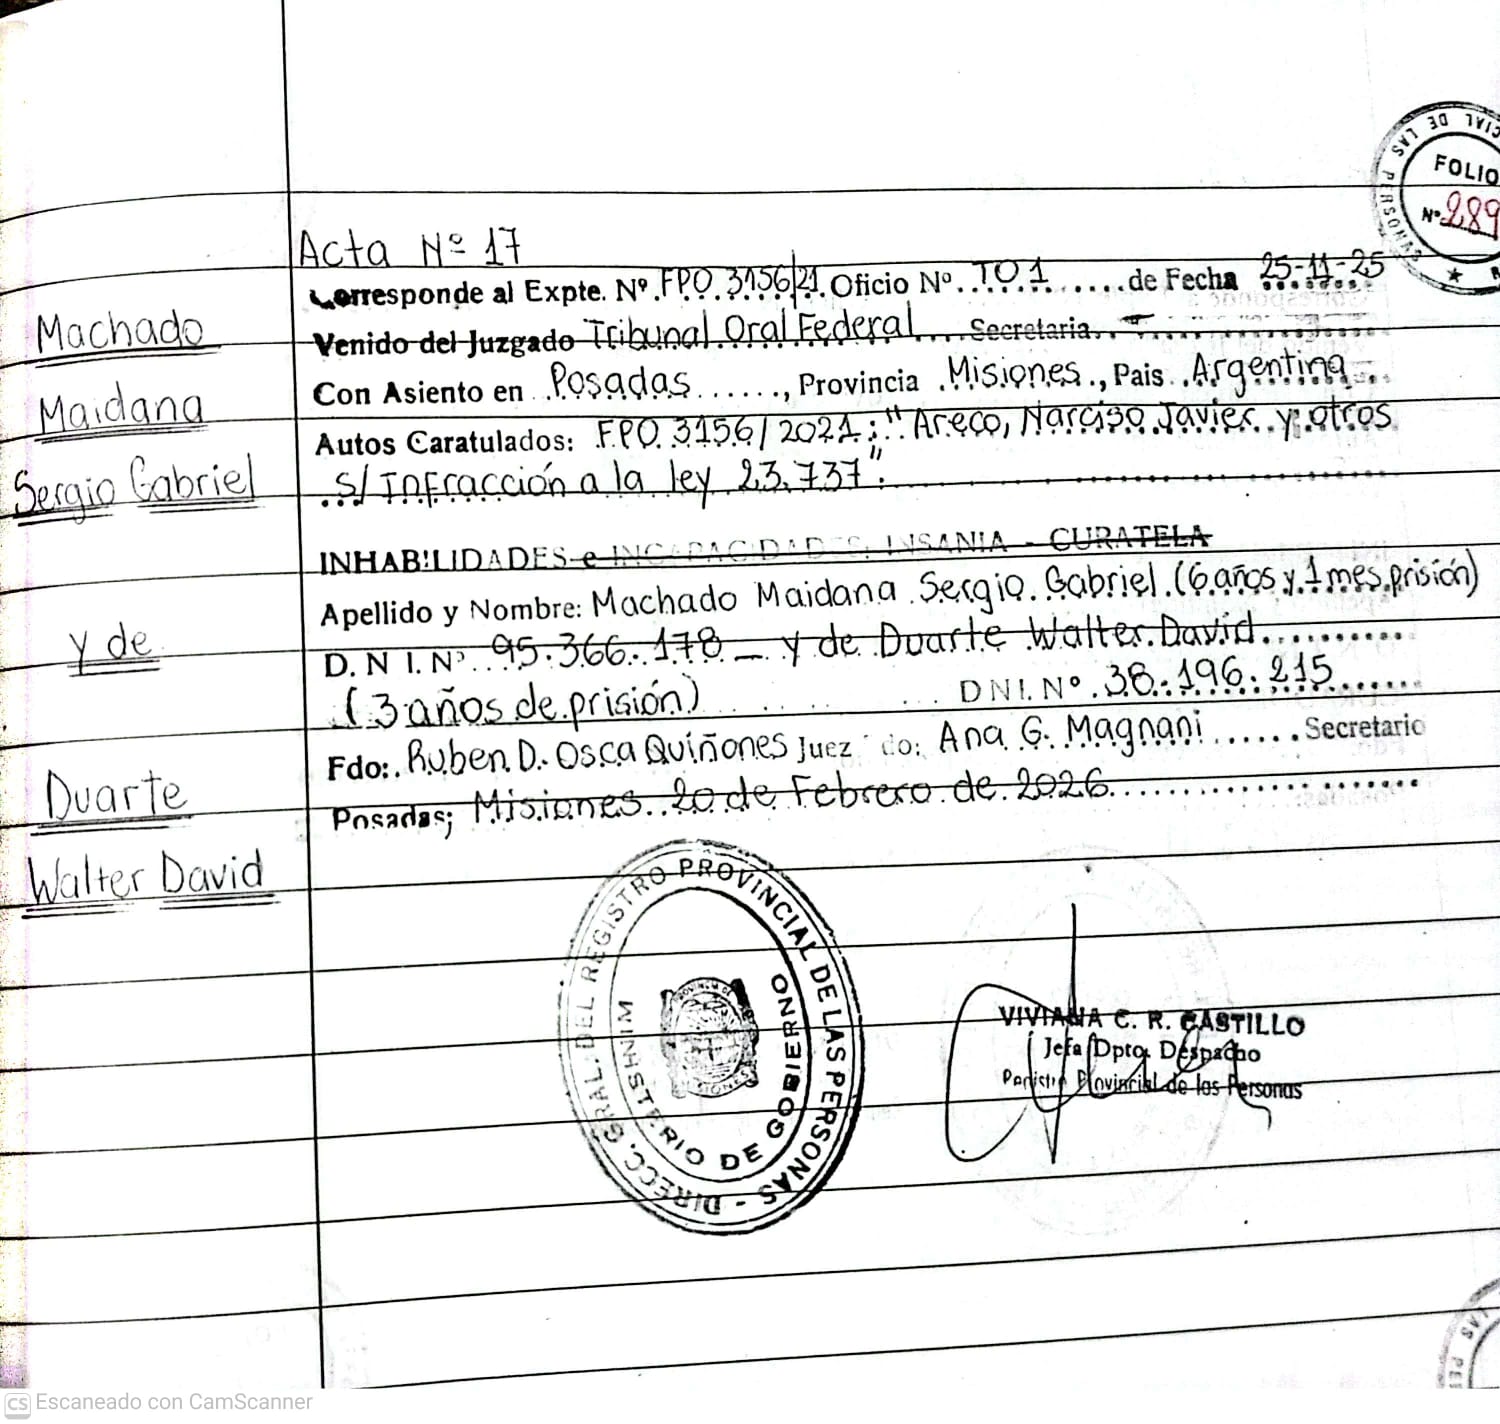 CIAL DE LAS PERSONAS
FOLIO
Nº 289
Acta Nº 17
Corresponde al Expte. Nº FPO 3156/21. Oficio Nº TO1 de Fecha 25-11-25
Venido del Juzgado Tribunal Oral Federal Secretaria. -
Con Asiento en Posadas, Provincia Misiones, Pais Argentina
Autos Caratulados: FPO 3156/2021: "Areco, Narciso Javier y otros
s/ Infracción a la ley 23.737".
INHABILIDADES e INCAPACIDADES, INSANIA - CURATELA
Apellido y Nombre: Machado Maidana Sergio Gabriel (6 años y 1 mes prisión)
D. N I. Nº 95.366.178 - y de Duarte Walter David
(3 años de prisión) DNI. Nº 38.196.215
Fdo: Ruben D. Osca Quiñones Juez do: Ana G. Magnani Secretario
Posadas; Misiones 20 de Febrero de 2026
Machado
Maidana
Sergio Gabriel
y de
Duarte
Walter David
DIRECC. GRAL. DEL REGISTRO PROVINCIAL DE LAS PERSONAS -
MINISTERIO DE GOBIERNO
VIVIANA C. R. CASTILLO
Jefa Dpto. Despacho
Registro Provincial de las Personas
LAS PE
CS Escaneado con CamScanner